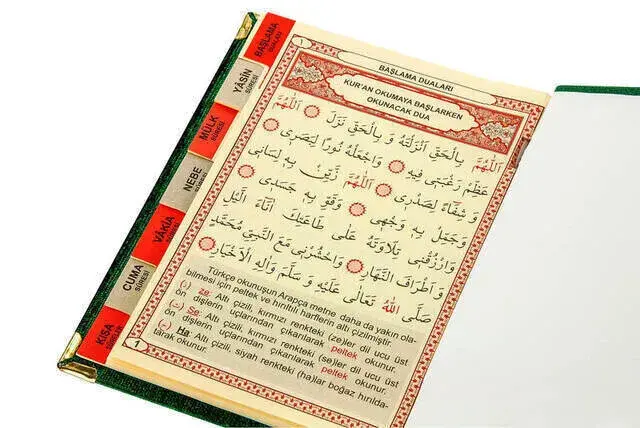 BAŞLAMA
DUALARI
YÂSİN
SÛRESİ
MÜLK
SÛRESİ
NEBE
SÛRESİ
VÂKIA
SÛRESİ
CUMA
SÛRESİ
KISA
SÛRELER
1
BAŞLAMA DUALARI
KUR'AN OKUMAYA BAŞLARKEN
OKUNACAK DUA
اَللّٰهُمَّ بِالْحَقِّ اَنْزَلْتَهُ وَ بِالْحَقِّ نَزَلَ اَللّٰهُمَّ
عَظِّمْ رَغْبَتِى فِيهِ وَاجْعَلْهُ نُورًا لِبَصَرِى
وَ شِفَاءً لِصَدْرِى اَللّٰهُمَّ زَيِّنْ بِهِ لِسَانِى
وَجَمِّلْ بِهِ وَجْهِى وَقَوِّ بِهِ جَسَدِى
وَارْزُقْنِى تِلَاوَتَهُ عَلَى طَاعَتِكَ اٰنَاءَ الَّيْلِ
وَ اَطْرَافَ النَّهَارِ وَاحْشُرْنِى مَعَ النَّبِىِّ مُحَمَّدٍ
صَلَّى اللّٰهُ تَعَالَى عَلَيْهِ وَ سَلَّمَ وَاٰلِهِ الْاَخْيَارِ
Türkçe okunuşun Arapça metne daha da yakın ola-
bilmesi için peltek ve hırıltılı harflerin altı çizilmiştir.
(ذ) ze: Altı çizili, kırmızı renkteki (ze)ler dil ucu üst
ön dişlerin uçlarından çıkarılarak peltek okunur.
(ث) Se: Altı çizili, kırmızı renkteki (se)ler dil ucu üst
ön dişlerin uçlarından çıkarılarak peltek okunur.
Ha: Altı çizili, siyah renkteki (ha)lar boğaz hırılda-
tarak okunur.
1